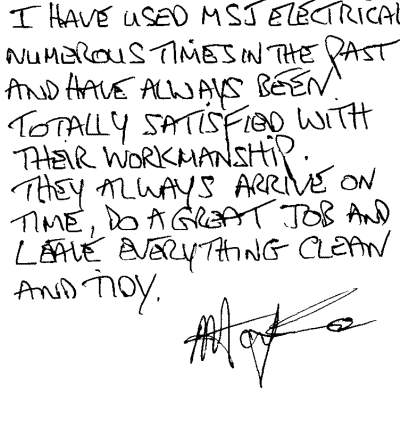 I HAVE USED MSJ ELECTRICAL
NUMEROUS TIMES IN THE PAST
AND HAVE ALWAYS BEEN
TOTALLY SATISFIED WITH
THEIR WORKMANSHIP.
THEY ALWAYS ARRIVE ON
TIME, DO A GREAT JOB AND
LEAVE EVERYTHING CLEAN
AND TIDY.